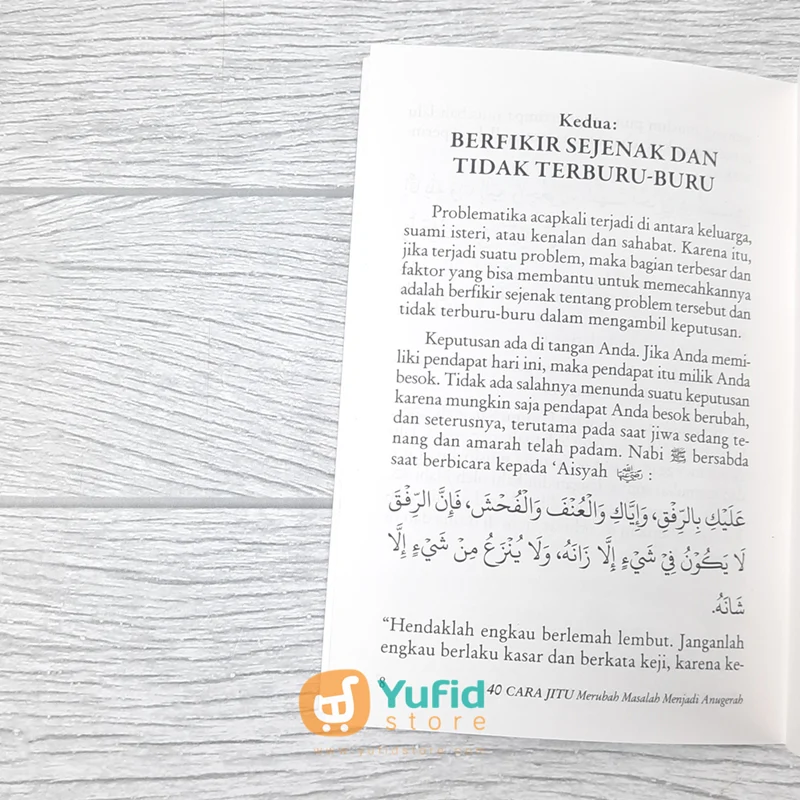 Kedua:
BERFIKIR SEJENAK DAN
TIDAK TERBURU-BURU
Problematika acapkali terjadi di antara keluarga,
suami isteri, atau kenalan dan sahabat. Karena itu,
jika terjadi suatu problem, maka bagian terbesar dan
faktor yang bisa membantu untuk memecahkannya
adalah berfikir sejenak tentang problem tersebut dan
tidak terburu-buru dalam mengambil keputusan.
Keputusan ada di tangan Anda. Jika Anda memi-
liki pendapat hari ini, maka pendapat itu milik Anda
besok. Tidak ada salahnya menunda suatu keputusan
karena mungkin saja pendapat Anda besok berubah,
dan seterusnya, terutama pada saat jiwa sedang te-
nang dan amarah telah padam. Nabi ﷺ bersabda
saat berbicara kepada ‘Aisyah :
عَلَيْكِ بِالرِّفْقِ، وَإِيَّاكِ وَالْعُنْفَ وَالْفُحْشَ، فَإِنَّ الرِّفْقَ
لَا يَكُوْنُ فِيْ شَيْءٍ إِلَّا زَانَهُ، وَلَا يُنْزَعُ مِنْ شَيْءٍ إِلَّا
شَانَهُ.
“Hendaklah engkau berlemah lembut. Janganlah
engkau berlaku kasar dan berkata keji, karena ke-
8
40 CARA JITU Merubah Masalah Menjadi Anugerah
Yufid
store